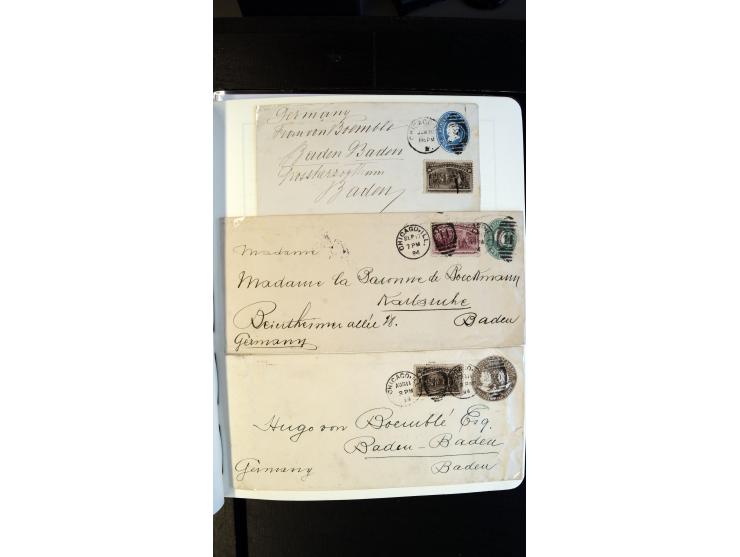 Germany
Frau von Boemble
Baden Baden
Grossherzogthum
Baden
CHICAGO
CHICAGO, ILL.
SEP 17
7 PM
94
Madame
Madame la Baronne de Boeckmann
Karlsruhe
Beiertheimer allée 28.
Baden
Germany
CHICAGO, ILL
AUG 11
94
Hugo von Boemblé Esq.
Baden-Baden
Baden
Germany